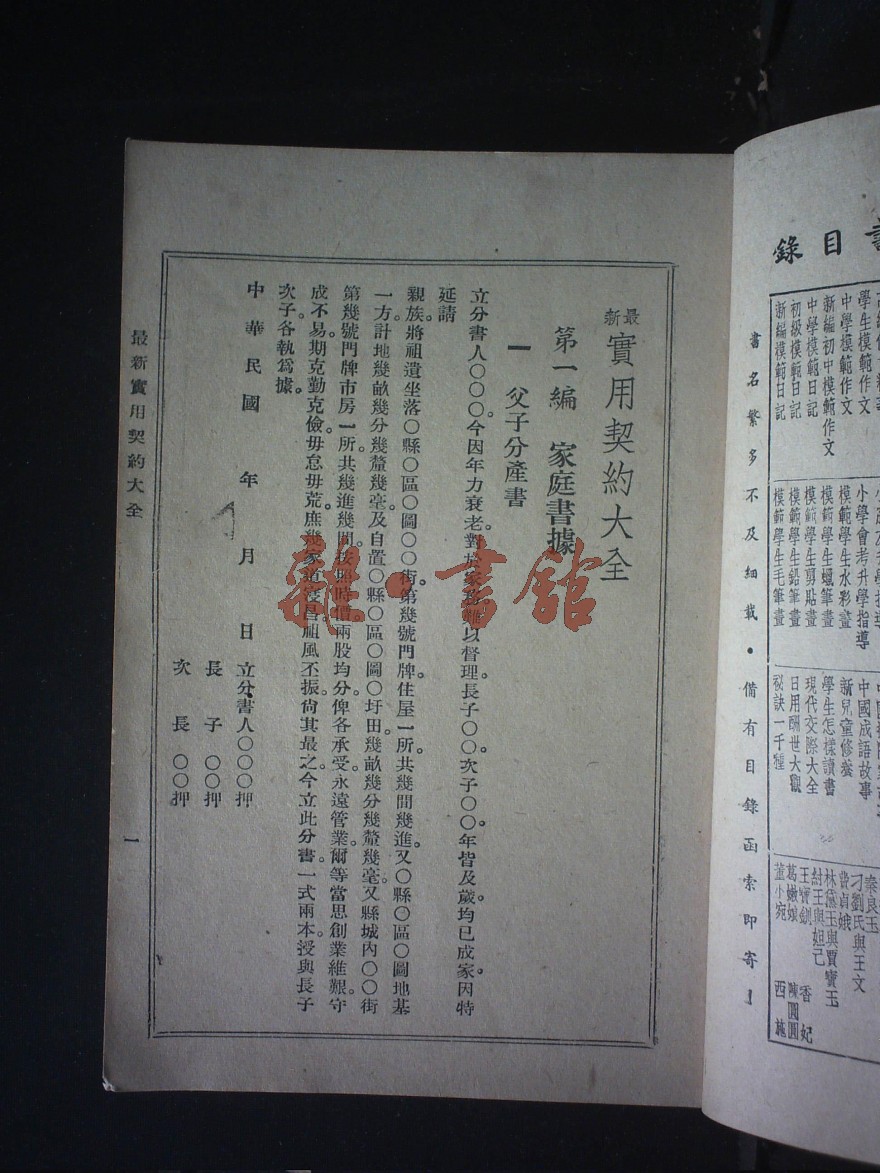 最新實用契約大全
第一編　家庭書據
一　父子分產書
立分書人〇〇〇。今因年力衰老。對於家務難以督理。長子〇〇。次子〇〇。年皆及歲。均已成家。因特
延請
親族。將祖遺坐落〇縣〇區〇圖〇〇街。第幾號門牌住屋一所。共幾間幾進。又〇縣〇區〇圖地基
一方。計地幾畝幾分幾釐幾毫。及自置〇縣〇區〇圖〇圩田。幾畝幾分幾釐幾毫。又縣城內〇〇街
第幾號門牌市房一所。共幾進幾間。按照時價。兩股均分。俾各承受。永遠管業。爾等當思創業維艱。守
成不易。期克勤克儉。毋怠毋荒。庶幾家道寖昌。祖風丕振。尙其最之。今立此分書一式兩本。授與長子
次子。各執爲據。
中華民國　年　月　日　立分書人〇〇〇押
長　子　〇〇押
次　長　〇〇押
最新實用契約大全
一
龍〇書館
書目錄
學生模範作文
中學模範作文
新編初中模範作文
中學模範日記
初級模範日記
新編模範日記
小學會考升學指導
模範學生水彩畫
模範學生蠟筆畫
模範學生剪貼畫
模範學生鉛筆畫
模範學生毛筆畫
中國成語故事
新兒童修養
學生怎樣讀書
現代交際大全
日用酬世大觀
秘訣一千種
秦良玉
刁劉氏與王文
費貞娥
林黛玉與賈寶玉
紂王與妲己
王寶釧　香妃
葛嫩娘　陳圓圓
董小宛　西施
書名繁多不及細載・備有目錄函索即寄！